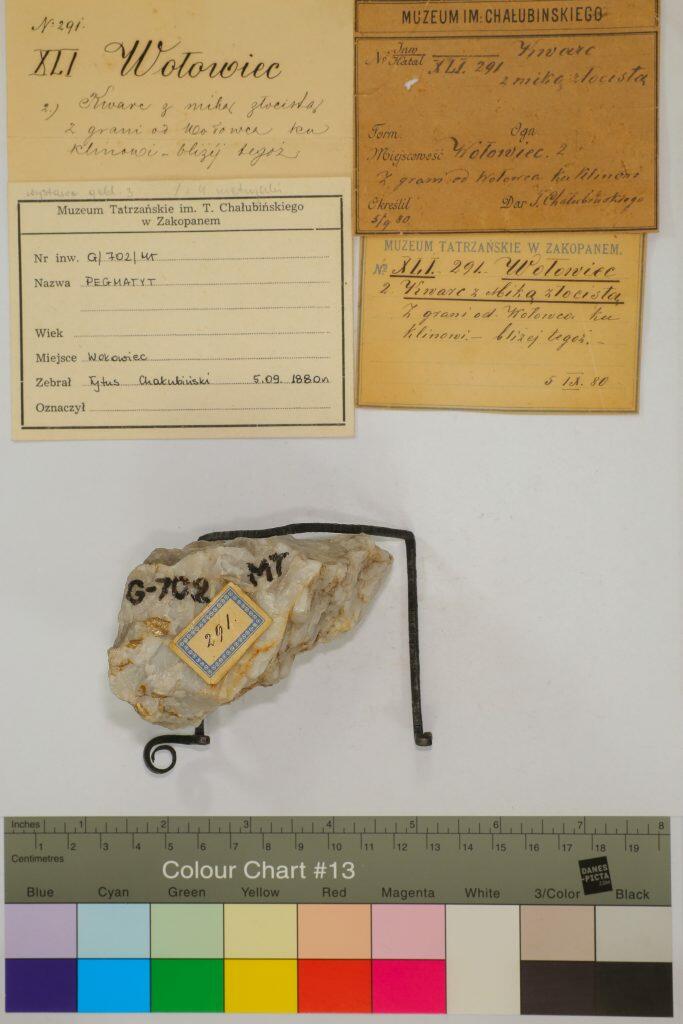 Nº 291.
XLI Wołowiec
2.) Kwarc z miką złocistą
z grani od Wołowca ku
klinowi – bliżéj tegoż
MUZEUM IM: CHAŁUBINSKIEGO
Nº Inw
Katal XLI. 291 Kwarc
z miką złocistą
Form. Oga
Miejscowość Wołowiec. 2
Z grani od Wołowca ku Klinowi
Określił Dar T. Chałubińskiego
5/9 80
Muzeum Tatrzańskie im. T. Chałubińskiego
w Zakopanem
Nr inw. G/702/MT
Nazwa PEGMATYT
Wiek
Miejsce Wołowiec
Zebrał Tytus Chałubiński 5.09. 1880r
Oznaczył
MUZEUM TATRZAŃSKIE W ZAKOPANEM.
Nº XLI. 291. Wołowiec
2. Kwarc z Miką złocistą
Z grani od Wołowca ku
klinowi. – bliżej tegoż. –
5 IX. 80
G-702 MT
291.
Inches 1 2 3 4 5 6 7 8
Centimetres 1 2 3 4 5 6 7 8 9 10 11 12 13 14 15 16 17 18 19
Colour Chart #13
DANES
-PICTA
.COM
Blue Cyan Green Yellow Red Magenta White 3/Color Black